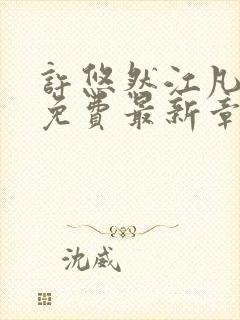 許悠然江凡
免費最新章
沈威